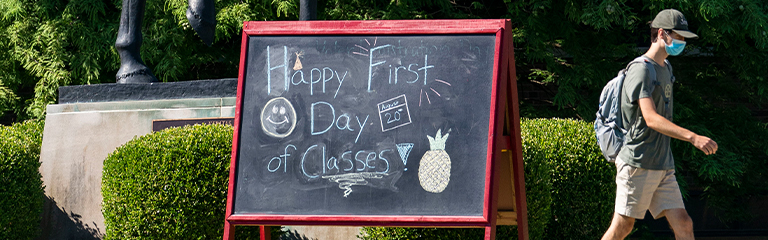 Happy First
Day
August
20
of Classes!